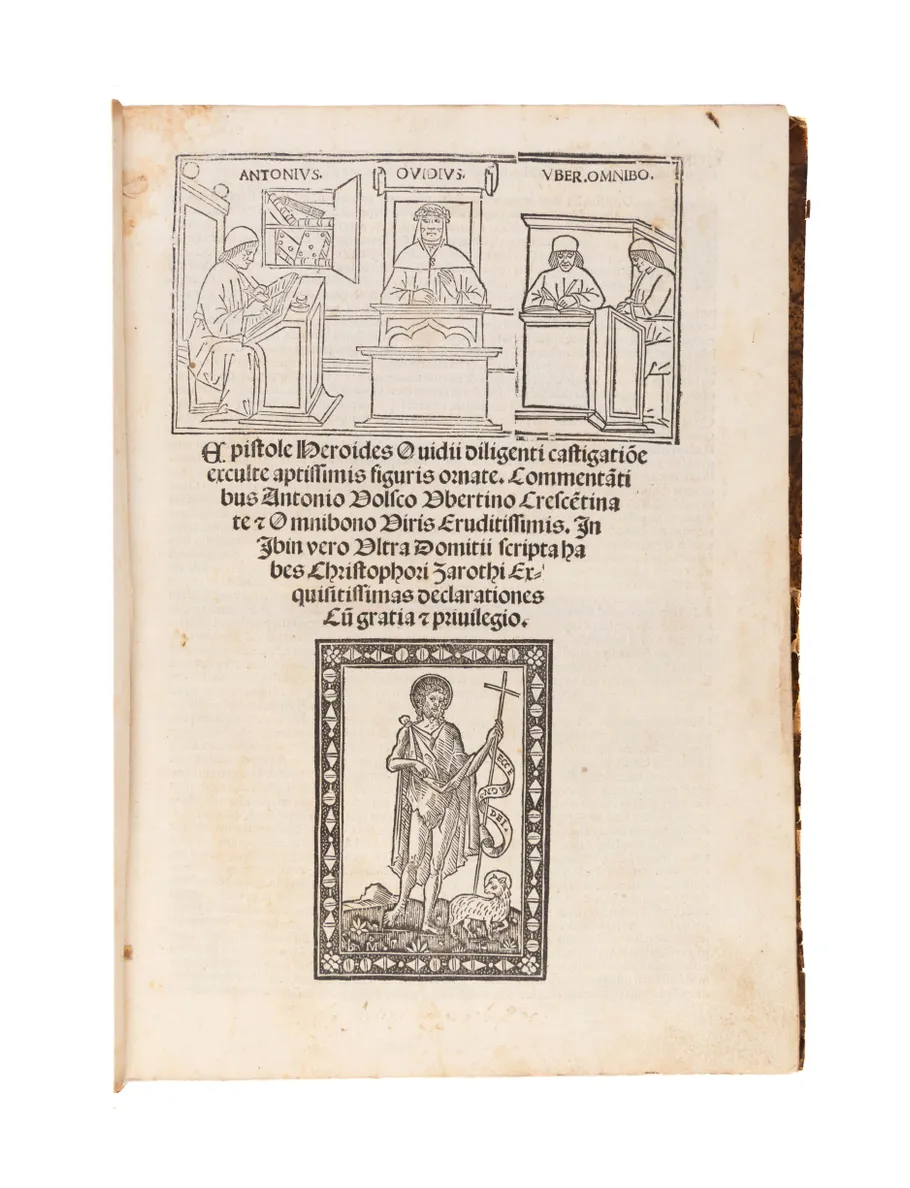 ANTONIVS. OVIDIVS. VBER. OMNIBO.
Epistole Heroides Ouidii diligenti castigatiõe
exculte aptissimis figuris ornate. Commentãti
bus Antonio Volsco Vbertino Crescẽtina
te ⁊ Omnibono Viris Eruditissimis. In
Ibin vero Vltra Domitii scripta ha
bes Christophori Zarothi Ex⸗
quisitissimas declarationes
Cũ gratia ⁊ priuilegio.
ECCE
AGN
DEI.
b M